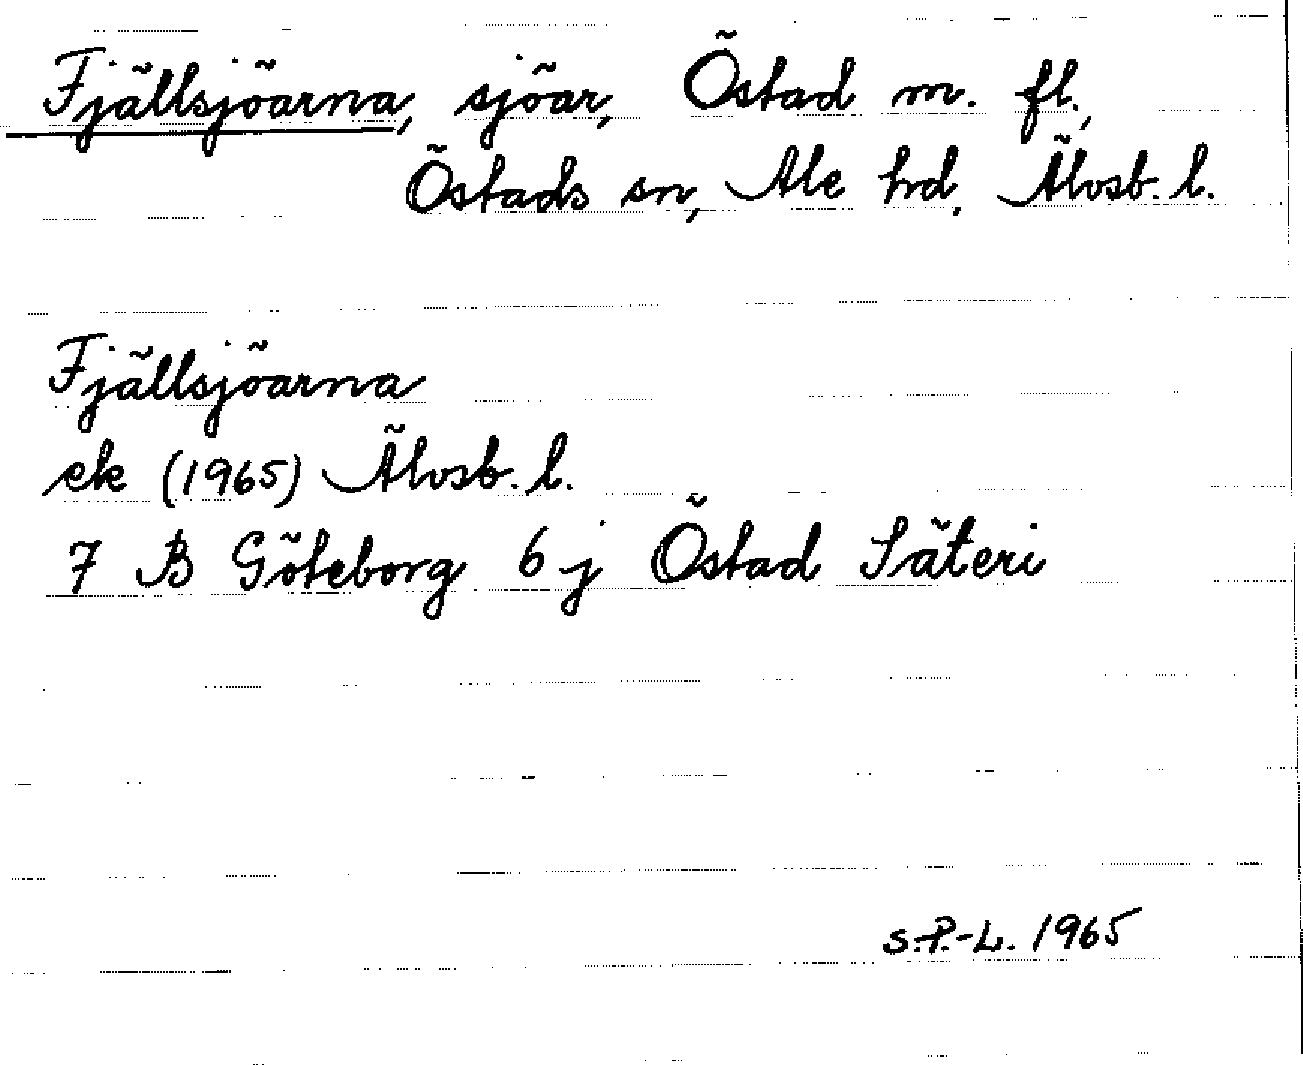 Fjällsjöarna, sjöar, Östad m. fl.,
Östads sn, Ale hd, Älvsb. l.
Fjällsjöarna
ek (1965) Älvsb. l.
7 B Göteborg 6 j Östad Säteri
S.P.-L. 1965